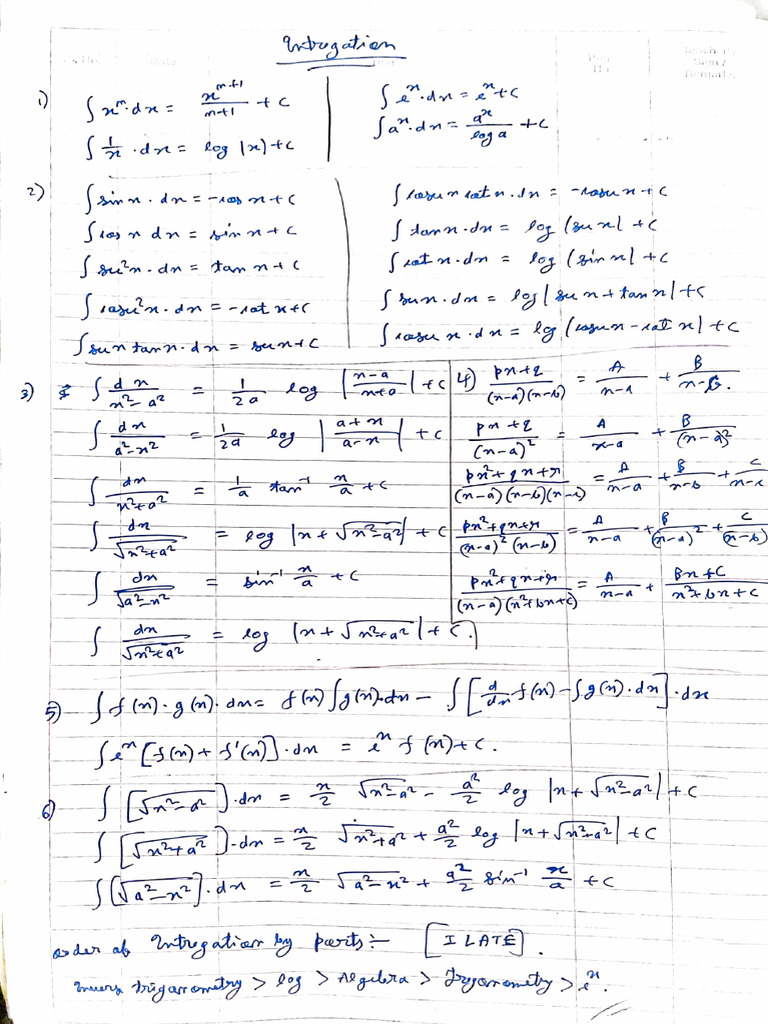 Introgation
1) ∫ x^m · dx = x^(m+1)/(m+1) + c
∫ 1/x · dx = log |x| + c
∫ e^x · dx = e^x + c
∫ a^x · dx = a^x/log a + c
2) ∫ sin x · dx = -cos x + c
∫ cos x dx = sin x + c
∫ sec²x · dx = tan x + c
∫ cosec²x · dx = -cot x + c
∫ secx tanx · dx = secx + c
∫ cosec x cot x · dx = -cosec x + c
∫ tan x · dx = log |sec x| + c
∫ cot x · dx = log |sin x| + c
∫ sec x · dx = log | sec x + tan x | + c
∫ cosec x · dx = log |cosec x - cot x| + c
3) ∫ dx/(x² - a²) = 1/2a log |(x-a)/(x+a)| + c
∫ dx/(a² - x²) = 1/2a log |(a+x)/(a-x)| + c
∫ dx/(x² + a²) = 1/a tan⁻¹ x/a + c
∫ dx/√(x² + a²) = log |x + √(x² - a²)| + c
∫ dx/√(a² - x²) = sin⁻¹ x/a + c
∫ dx/√(x² + a²) = log |x + √(x² + a²)| + c.
4) (px+q)/((x-a)(x-b)) = A/(x-a) + B/(x-b).
(px+q)/(x-a)² = A/(x-a) + B/(x-a)²
(px²+qx+r)/((x-a)(x-b)(x-c)) = A/(x-a) + B/(x-b) + C/(x-c)
(px²+qx+r)/((x-a)²(x-b)) = A/(x-a) + B/(x-a)² + C/(x-b)
(px²+qx+r)/((x-a)(x²+bx+c)) = A/(x-a) + (Bx+C)/(x²+bx+c)
5) ∫ f(x) · g(x) · dx = f(x) ∫g(x)·dx - ∫ [d/dx f(x) - ∫g(x) · dx] · dx
∫ e^x [f(x) + f'(x)] · dx = e^x f(x) + c.
6) ∫ [√(x² - a²)] · dx = x/2 √(x² - a²) - a²/2 log |x + √(x² - a²)| + c
∫ [√(x² + a²)] · dx = x/2 √(x² + a²) + a²/2 log |x + √(x² + a²)| + c
∫ [√(a² - x²)] · dx = x/2 √(a² - x²) + a²/2 sin⁻¹ x/a + c
order of Introgation by parts :- [I LATE].
Inverse trigonometry > log > Algebra > Trigonometry > e^x.